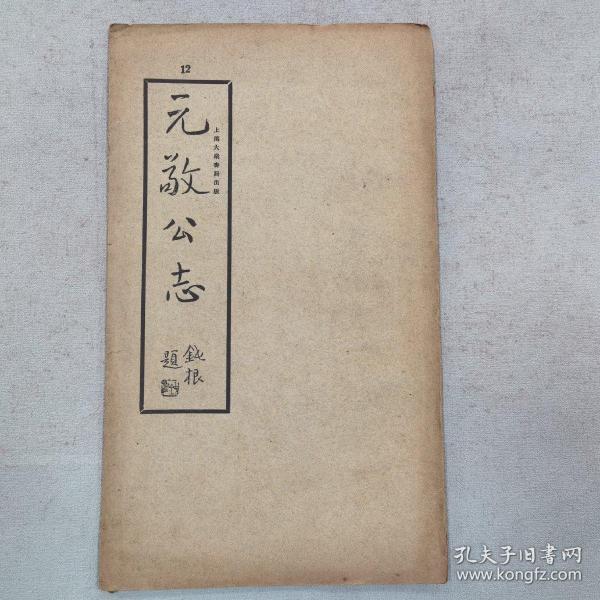 12
上海大眾書局出版
元敬公志
鈍根
題
孔夫子旧書网
www.kongfz.com